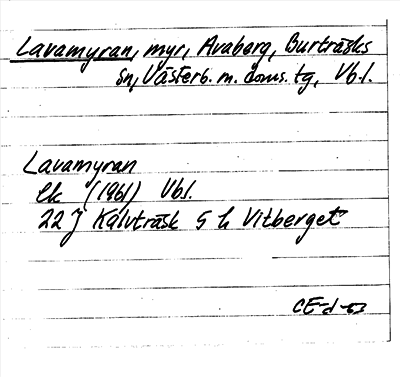 Lavamyran, myr, Avaberg, Burträsks
sn, Västerb. m. doms. tg, Vbl.
Lavamyran
Ek (1961) Vbl.
22 J Kalvträsk 5 h Vitberget